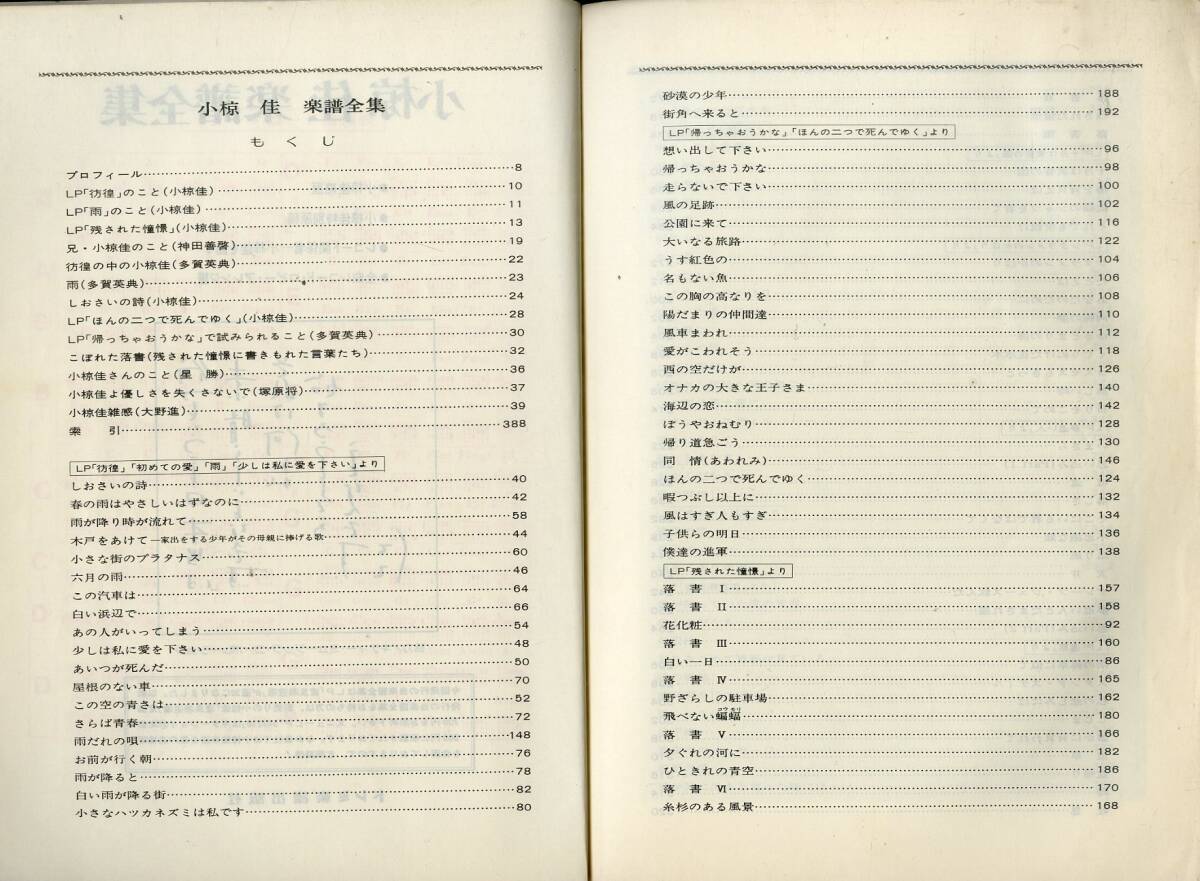 小椋　佳　楽譜全集
もくじ
プロフィール……8
LP「彷徨」のこと(小椋佳)……10
LP「雨」のこと(小椋佳)……11
LP「残された憧憬」(小椋佳)……13
兄・小椋佳のこと(神田善啓)……19
彷徨の中の小椋佳(多賀英典)……22
雨(多賀英典)……23
しおさいの詩(小椋佳)……24
LP「ほんの二つで死んでゆく」(小椋佳)……28
LP「帰っちゃおうかな」で試みられること(多賀英典)……30
こぼれた落書(残された憧憬に書きもれた言葉たち)……32
小椋佳さんのこと(星　勝)……36
小椋佳よ優しさを失くさないで(塚原将)……37
小椋佳雑感(大野進)……39
索　引……388
LP「彷徨」「初めての愛」「雨」「少しは私に愛を下さい」より
しおさいの詩……40
春の雨はやさしいはずなのに……42
雨が降り時が流れて……58
木戸をあけて―家出をする少年がその母親に捧げる歌……44
小さな街のプラタナス……60
六月の雨……46
この汽車は……64
白い浜辺で……66
あの人がいってしまう……54
少しは私に愛を下さい……48
あいつが死んだ……50
屋根のない車……70
この空の青さは……52
さらば青春……72
雨だれの唄……148
お前が行く朝……76
雨が降ると……78
白い雨が降る街……82
小さなハツカネズミは私です……80
砂漠の少年……188
街角へ来ると……192
LP「帰っちゃおうかな」「ほんの二つで死んでゆく」より
想い出して下さい……96
帰っちゃおうかな……98
走らないで下さい……100
風の足跡……102
公園に来て……116
大いなる旅路……122
うす紅色の……104
名もない魚……106
この胸の高なりを……108
陽だまりの仲間達……110
風車まわれ……112
愛がこわれそう……118
西の空だけが……126
オナカの大きな王子さま……140
海辺の恋……142
ぼうやおねむり……128
帰り道急ごう……130
同　情(あわれみ)……146
ほんの二つで死んでゆく……124
暇つぶし以上に……132
風はすぎ人もすぎ……134
子供らの明日……136
僕達の進軍……138
LP「残された憧憬」より
落　書　Ⅰ……157
落　書　Ⅱ……158
花化粧……92
落　書　Ⅲ……160
白い一日……86
落　書　Ⅳ……165
野ざらしの駐車場……162
飛べない蝙蝠(コウモリ)……180
落　書　Ⅴ……166
夕ぐれの河に……182
ひときれの青空……186
落　書　Ⅵ……170
糸杉のある風景……168